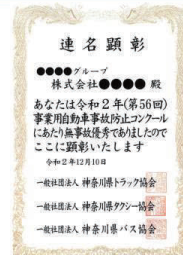 連名顕彰
●●●●グループ
株式会社●●●● 殿
あなたは令和2年(第56回)
事業用自動車事故防止コンクール
にあたり無事故優秀でありましたので
ここに顕彰いたします
令和2年12月10日
一般社団法人 神奈川県トラック協会
一般社団法人 神奈川県タクシー協会
一般社団法人 神奈川県バス協会